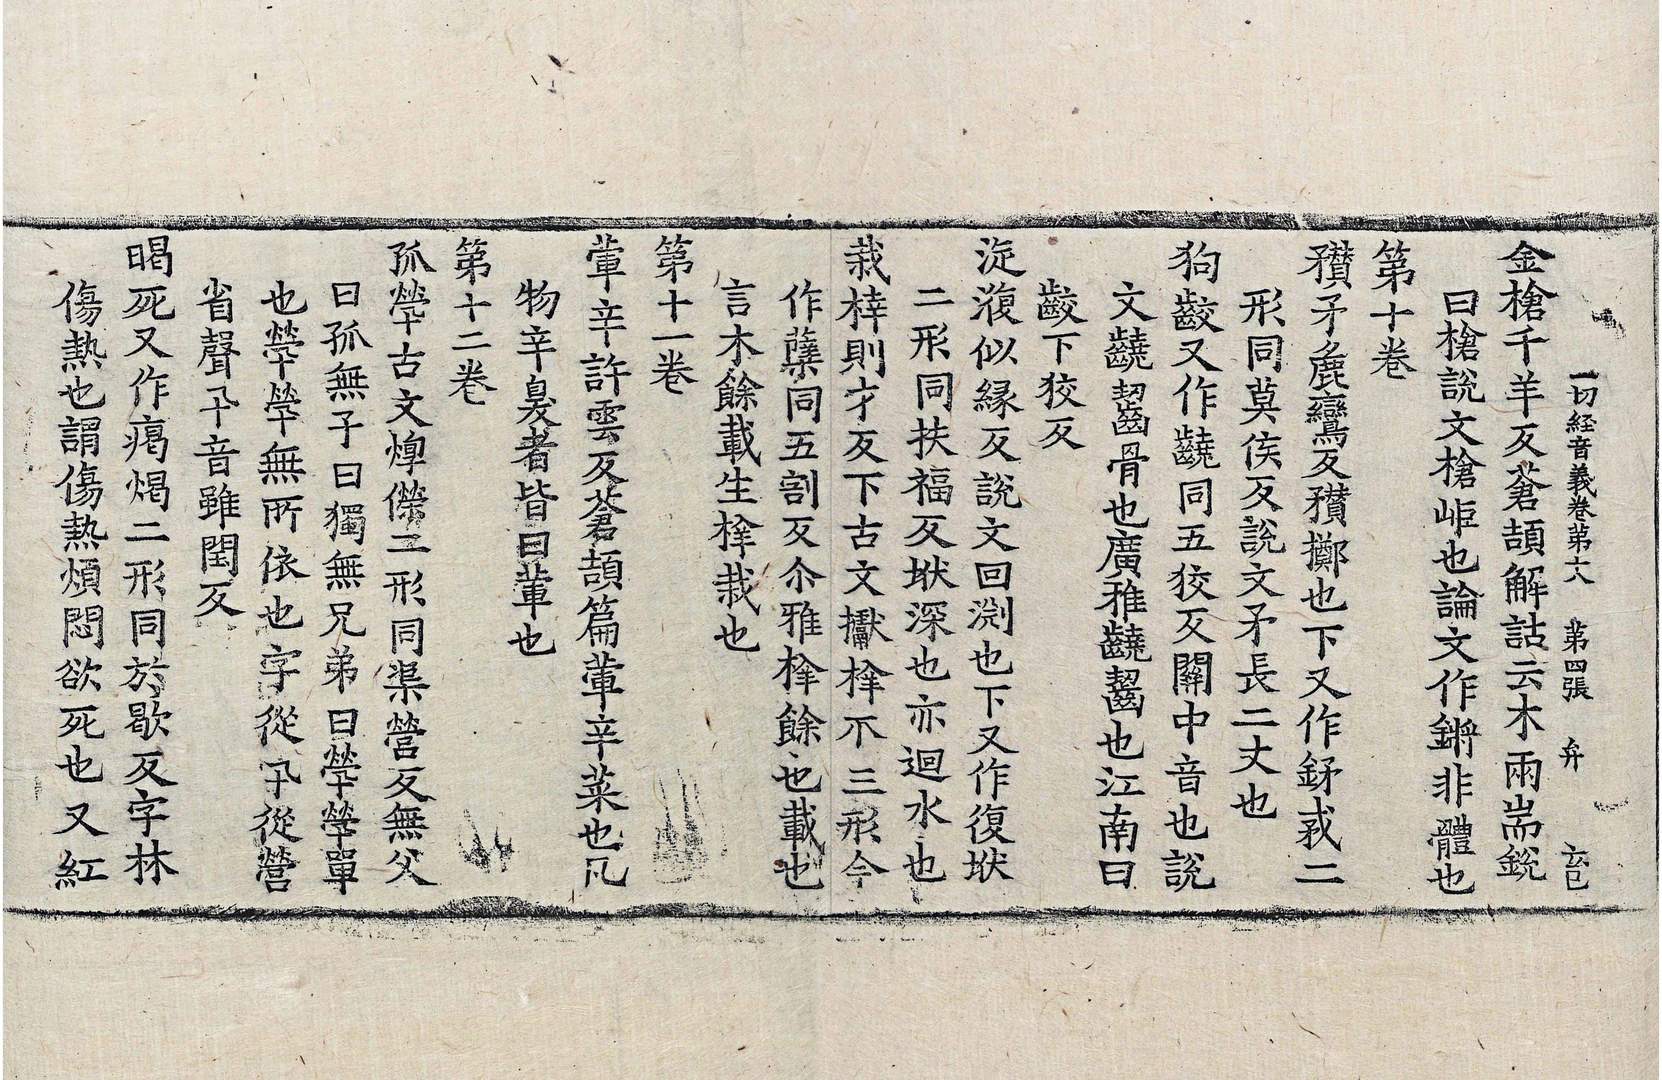 一切経音義卷第十八 第四張 弁
金槍千羊反蒼頡解詁云木兩耑銳
曰槍說文槍岠也論文作鏘非體也
第十卷
穳矛麁鸞反穳擲也下又作鉘𢦧二
形同莫侯反說文矛長二丈也
狗齩又作齩同五狡反關中音也說
文齩齧骨也廣雅齩齧也江南曰
齩下狡反
淀澓似縁反說文回渕也下又作復垘
二形同扶福反垘深也亦迴水也
栽梓則才反下古文櫱栓不三形今
作蘗同五割反尒雅栓餘也載也
言木餘載生栓栽也
第十一卷
葷辛許雲反蒼頡篇葷辛菜也凡
物辛臭者皆曰葷也
第十二卷
孤煢古文惸傑二形同渠營反無父
曰孤無子曰獨無兄弟曰煢煢單
也煢煢無所依也字從卂從營
省聲卂音雖閏反
暍死又作㾛煬二形同於歇反字林
傷熱也謂傷熱煩悶欲死也又紅